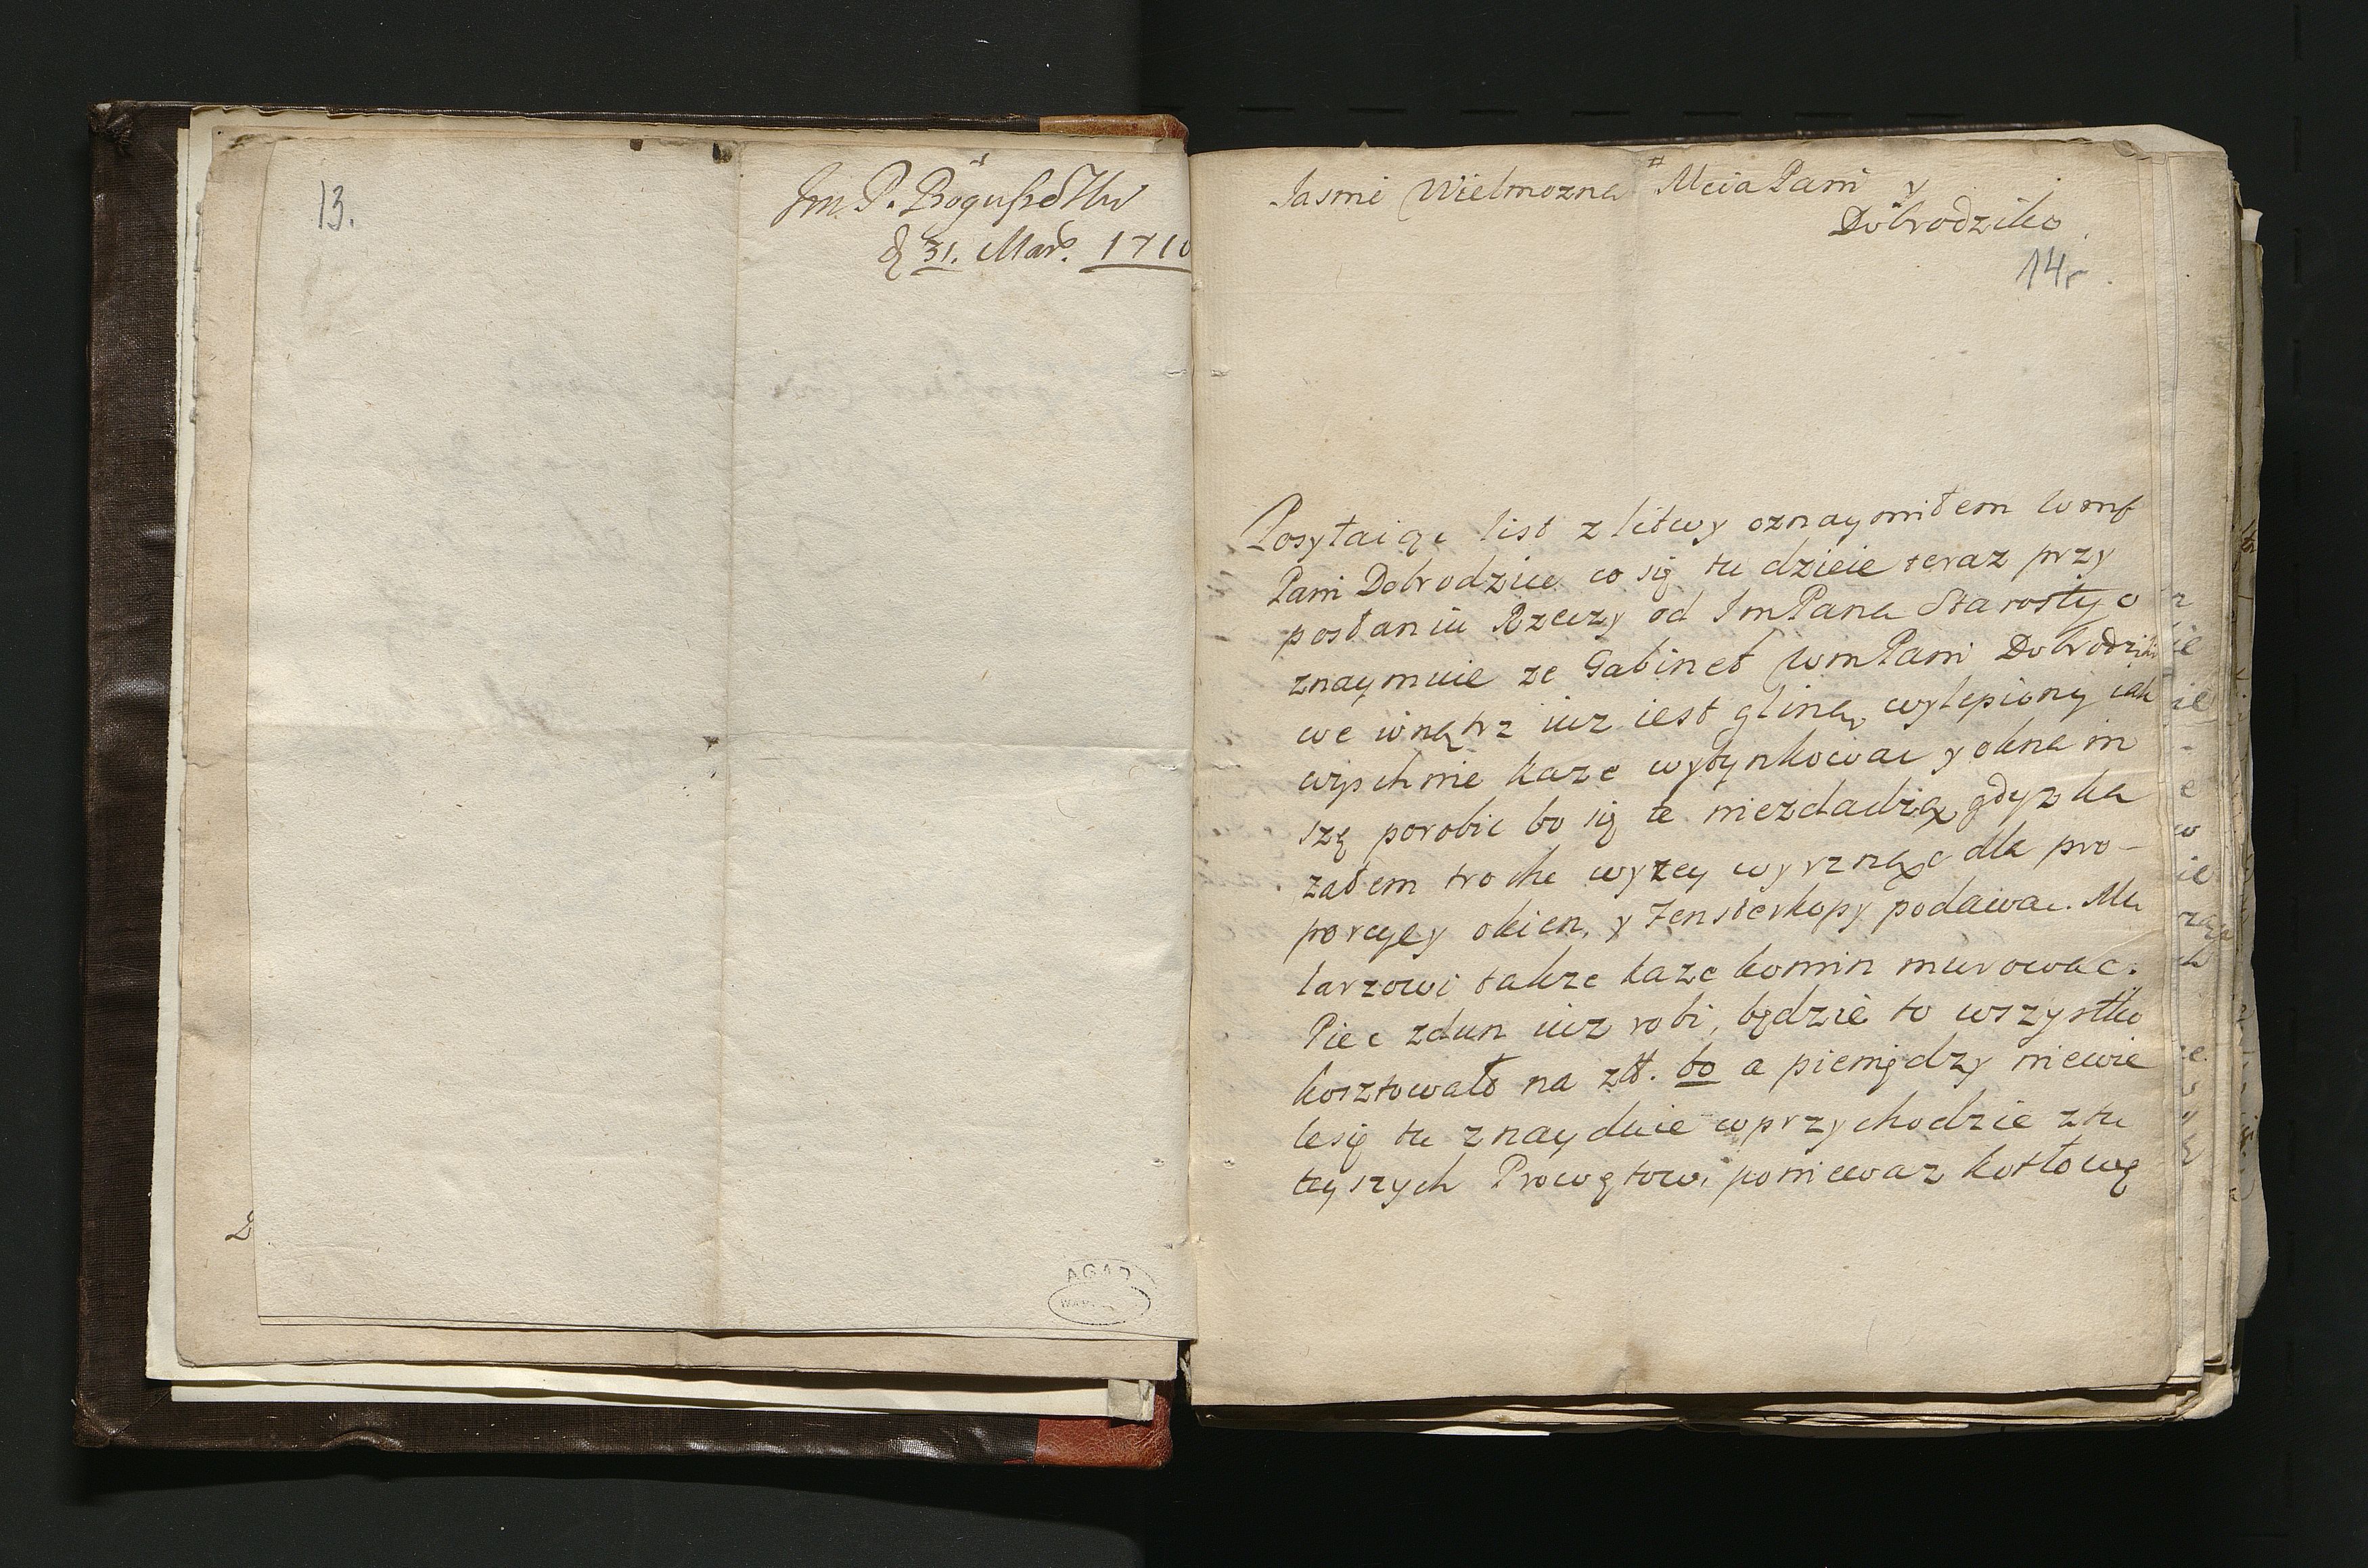 13.
Im. P.
31. Mar. 1710
AGAD
Jasnie Wielmozna Mcia Pani y
Dobrodziko
14r.
Posyłaiąc list z litwy oznaymiłem Wmę
Pani Dobrodziice co się tu dzieie teraz przy
posłaniu Rzeczy od ImPana Starosty o
znaymuie ze Gabinet WmPani Dobrodziki
we wnątrz iuz iest gliną wylepiony iak
wyschnie kaze wytynkowac y okna m
szę porobic bo się te niezdadzą gdyz ka
załem troche wyzey wyrznąc dla pro-
porcyey okien, y Fensterkopy podawac. Mu
larzowi takze kaze komin murowac.
Piec zdun iuz robi, będzie to wszystko
kosztowało na zł. a pieniędzy niewie
le się tu znayduie w przychodzie z tu
teyszych Prowętow, poniewaz kotłowę